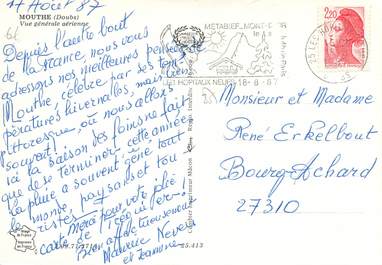 17 Août 87
MOUTHE (Doubs)
Vue générale aérienne
Depuis l'autre bout
de la France nous vous
adressons nos meilleures pensées de
Mouthe, célèbre par ses tem-
pératures hivernales, mais bien
pittoresque, où nous allons
souvent.
ici la saison des foins ne fait
que de se terminer, cette année
la pluie a souvent gêné tout
le monde, paysans et tou
ristes. Merci pour votre jolie
carte de
Bien affectueusement
Maurice Nevers
et Jeannine
METABIEF MONT D'OR
LES HOPITAUX NEUFS 18-8-87
2,20
Combier imprimeur Mâcon
25.413
Monsieur et Madame
René Erkelbout
Bourg-Achard
27310